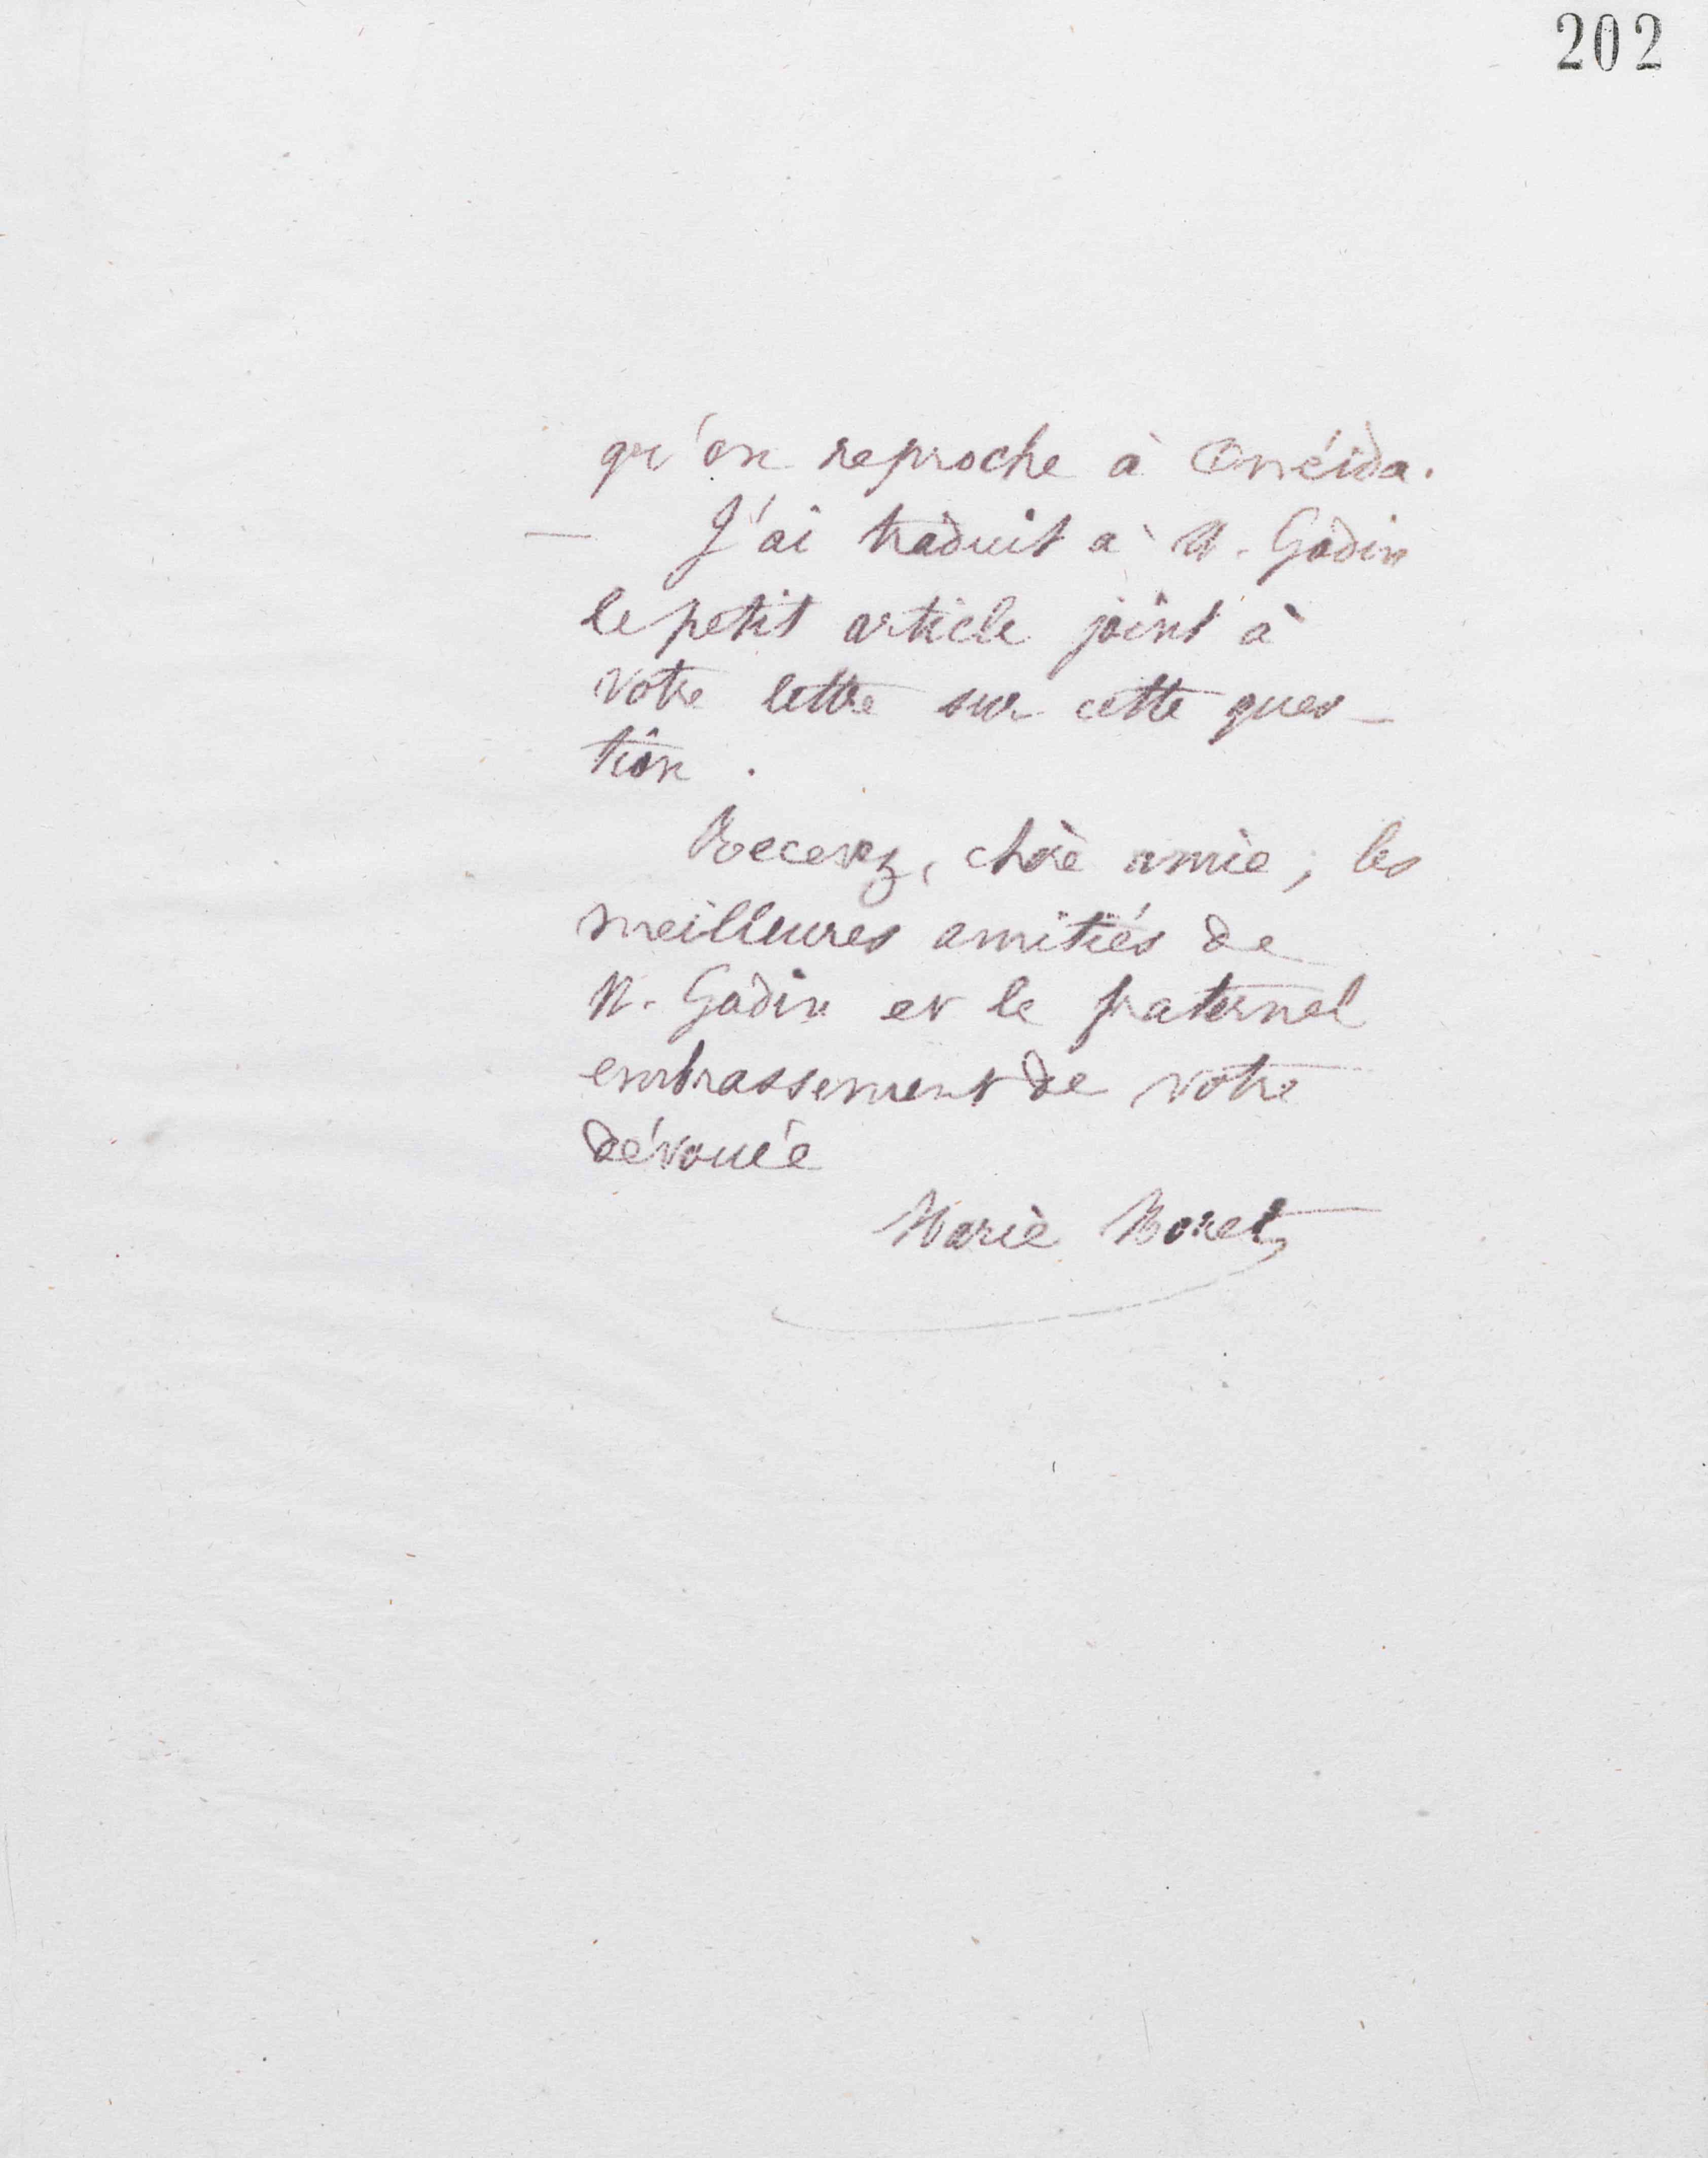 202
qu'on reproche à Onéida.
— J'ai traduit à M. Godin
le petit article joint à
votre lettre sur cette ques-
tion.
Recevez, chère amie, les
meilleures amitiés de
M. Godin et le fraternel
embrassement de votre
dévouée
Marie Moret